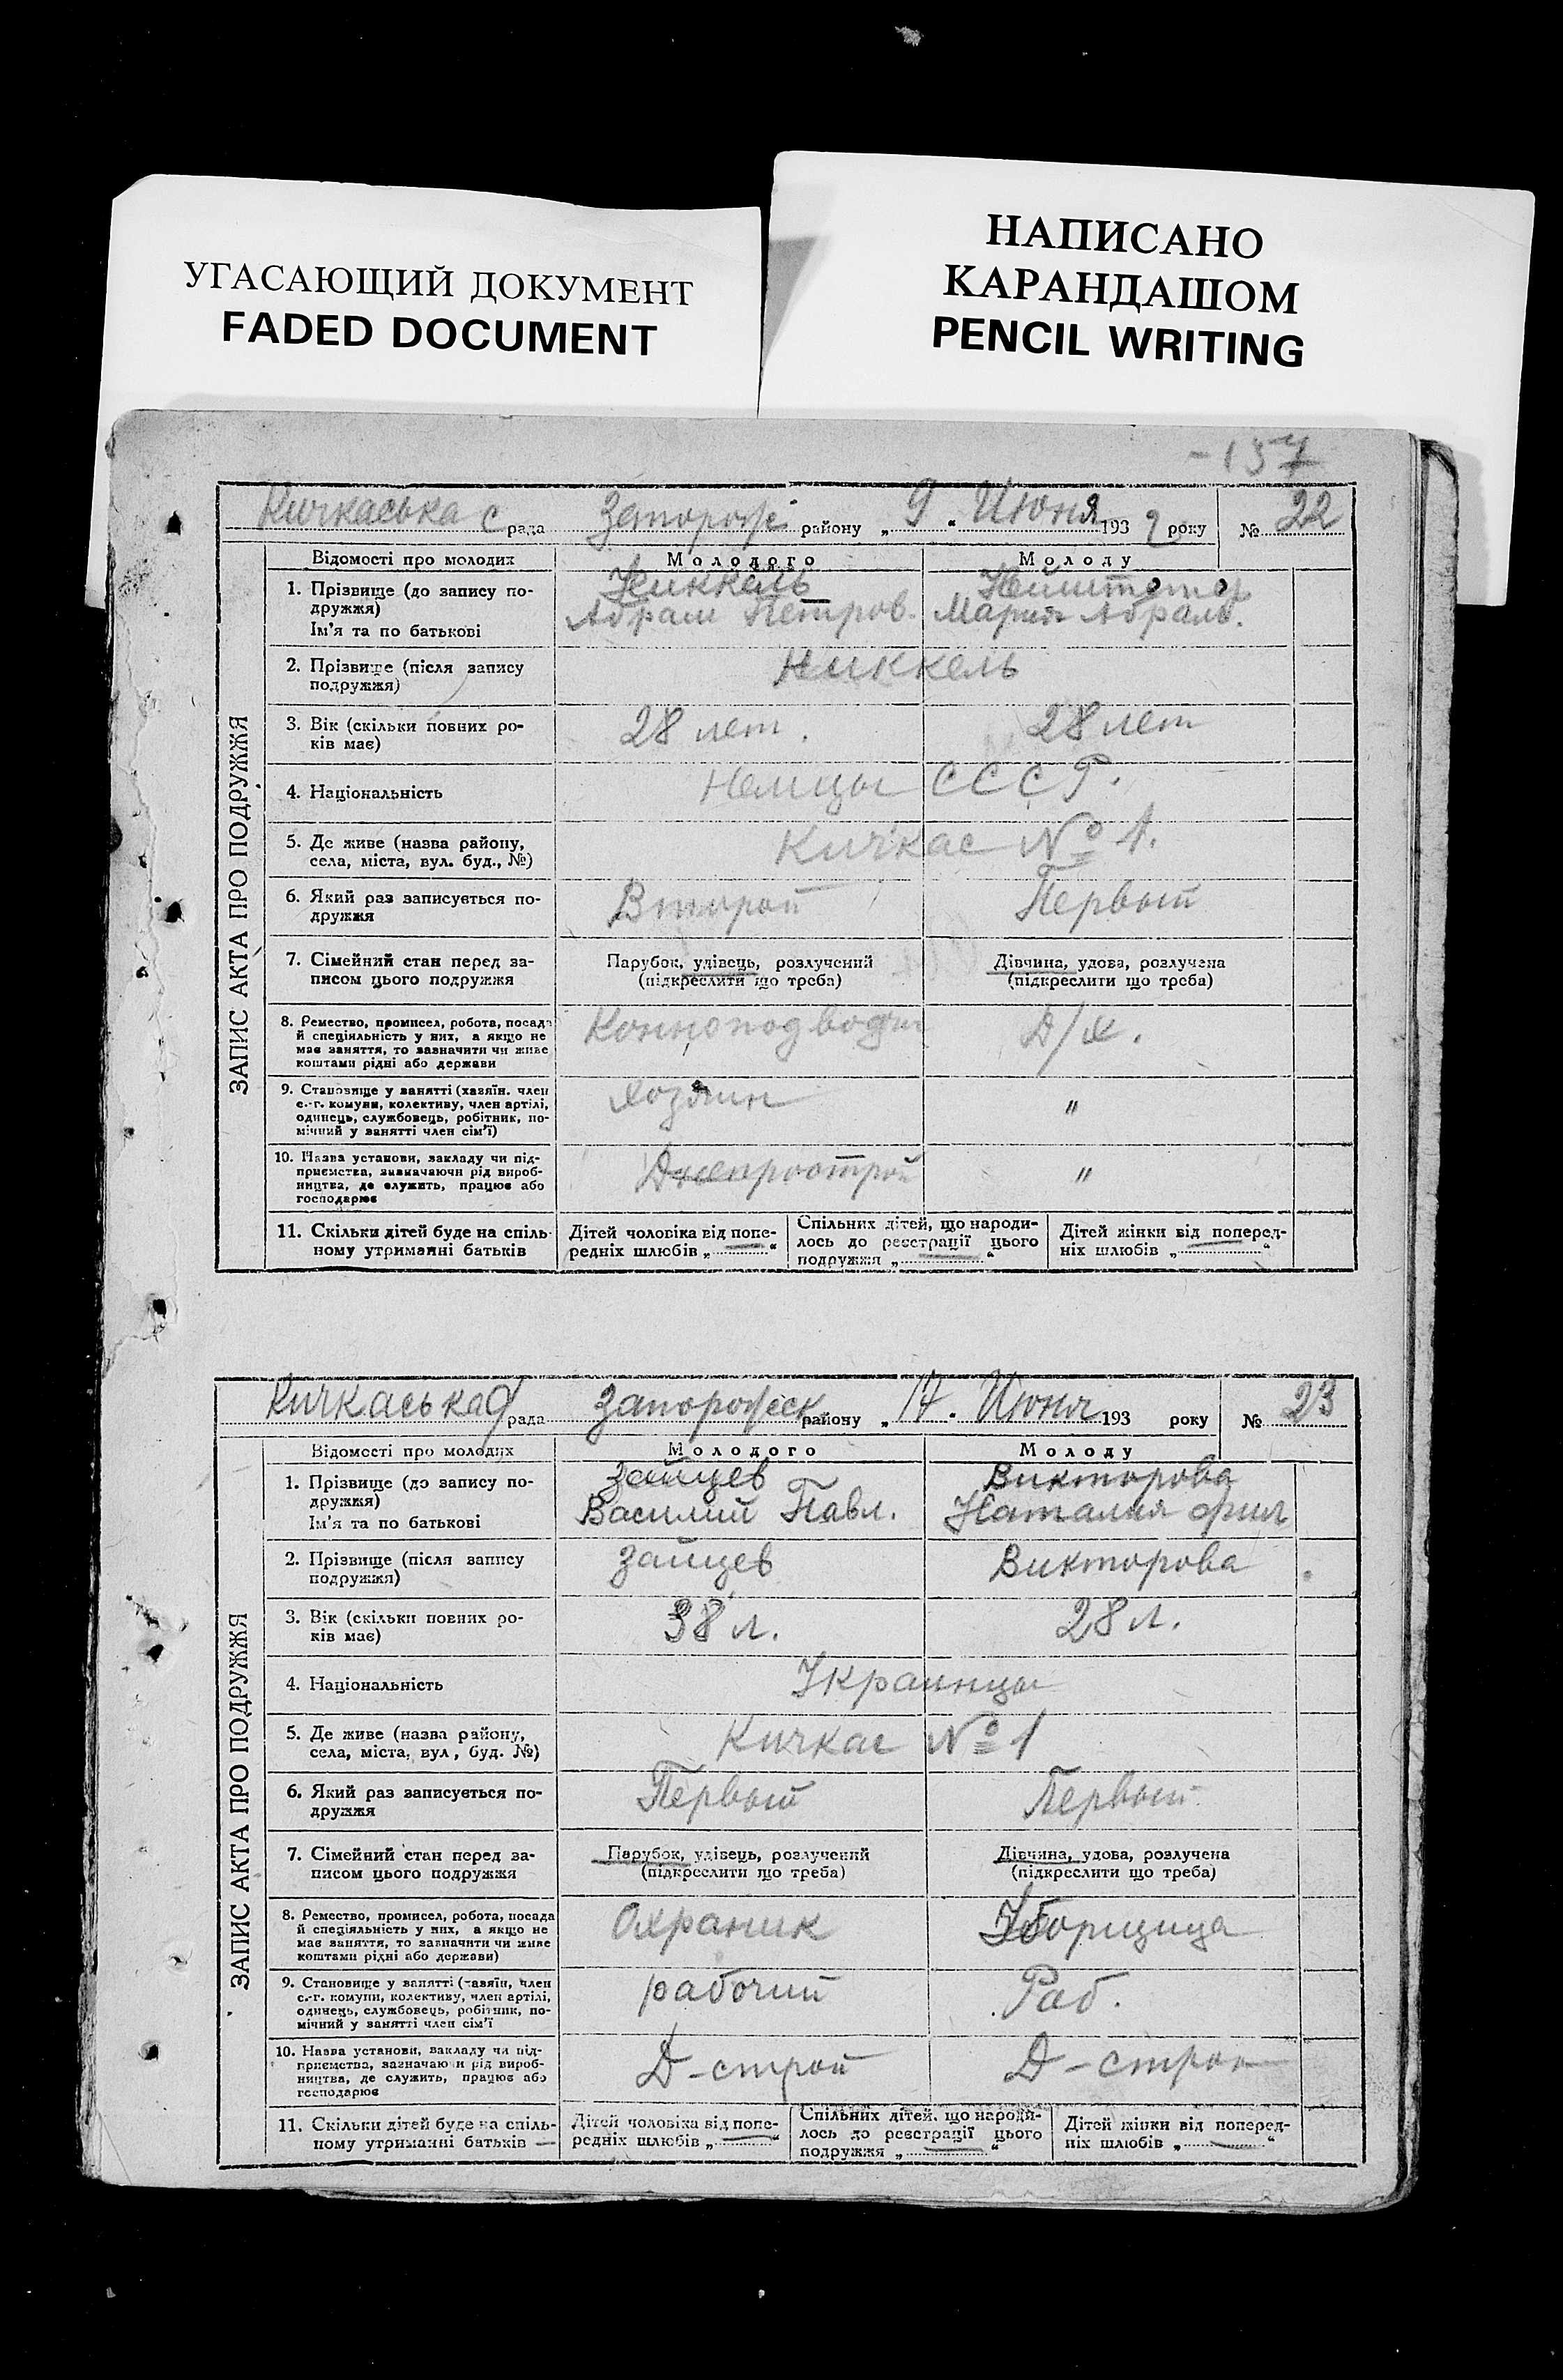 УГАСАЮЩИЙ ДОКУМЕНТ
FADED DOCUMENT
НАПИСАНО
КАРАНДАШОМ
PENCIL WRITING
-157
Кичкаська с рада Запорожс району „ 9 “ Июня 193 року № 22
ЗАПИС АКТА ПРО ПОДРУЖЖЯ
Відомості про молодих Молодого Молоду
1. Прізвище (до запису по-
дружжя)
Ім'я та по батькові
Никкель
Абрам Петров.
Нейштетер
Мария Абрам.
2. Прізвище (після запису
подружжя)
Никкель
3. Вік (скільки повних ро-
ків має)
28 лет.
28 лет
4. Національність
Немцы СССР.
5. Де живе (назва району,
села, міста, вул. буд., №)
Кичкас № 1.
6. Який раз записується по-
дружжя
Второй
Первый
7. Сімейний стан перед за-
писом цього подружжя
Парубок, удівець, розлучений
(підкреслити що треба)
Дівчина, удова, розлучена
(підкреслити що треба)
8. Ремество, промисел, робота, посада
й спеціяльність у них, а якщо не
має заняття, то зазначити чи живе
коштами рідні або держави
Д/х.
9. Становище у занятті (хазяїн, член
с.-г. комуни, колективу, член артілі,
одинець, службовець, робітник, по-
мічний у занятті член сім'ї)
Хозяин
"
10. Назва установи, закладу чи під-
приємства, зазначаючи рід вироб-
ництва, де служить, працює або
господарює
Днепрострой
"
11. Скільки дітей буде на спіль-
ному утриманні батьків
Дітей чоловіка від попе-
редніх шлюбів „ — “
Спільних дітей, що народи-
лось до реєстрації цього
подружжя „ — “
Дітей жінки від поперед-
ніх шлюбів „ — “
Кичкаська с/рада Запорожск району „ 17. Июня 193 року № 23
ЗАПИС АКТА ПРО ПОДРУЖЖЯ
Відомості про молодих Молодого Молоду
1. Прізвище (до запису по-
дружжя)
Ім'я та по батькові
Зайцев
Василий Павл.
Викторова
Наталия Фил
2. Прізвище (після запису
подружжя)
Зайцев
Викторова
3. Вік (скільки повних ро-
ків має)
38 л.
28 л.
4. Національність
Украинцы
5. Де живе (назва району,
села, міста, вул, буд. №)
Кичкас № 1
6. Який раз записується по-
дружжя
Первый
Первый
7. Сімейний стан перед за-
писом цього подружжя
Парубок, удівець, розлучений
(підкреслити що треба)
Дівчина, удова, розлучена
(підкреслити що треба)
8. Ремество, промисел, робота, посада
й спеціяльність у них, а якщо не
має заняття, то зазначити чи живе
коштами рідні або держави)
Охраник
Уборщица
9. Становище у занятті (хазяїн, член
с.-г. комуни, колективу, член артілі,
одинець, службовець, робітник, по-
мічний у занятті член сім'ї
рабочий
Раб.
10. Назва установи, закладу чи під-
приємства, зазначаючи рід вироб-
ництва, де служить, працює або
господарює
Д-строй
Д-строй
11. Скільки дітей буде на спіль-
ному утриманні батьків —
Дітей чоловіка від попе-
редніх шлюбів „ — “
Спільних дітей, що народи-
лось до реєстрації цього
подружжя „ — “
Дітей жінки від поперед-
ніх шлюбів „ — “